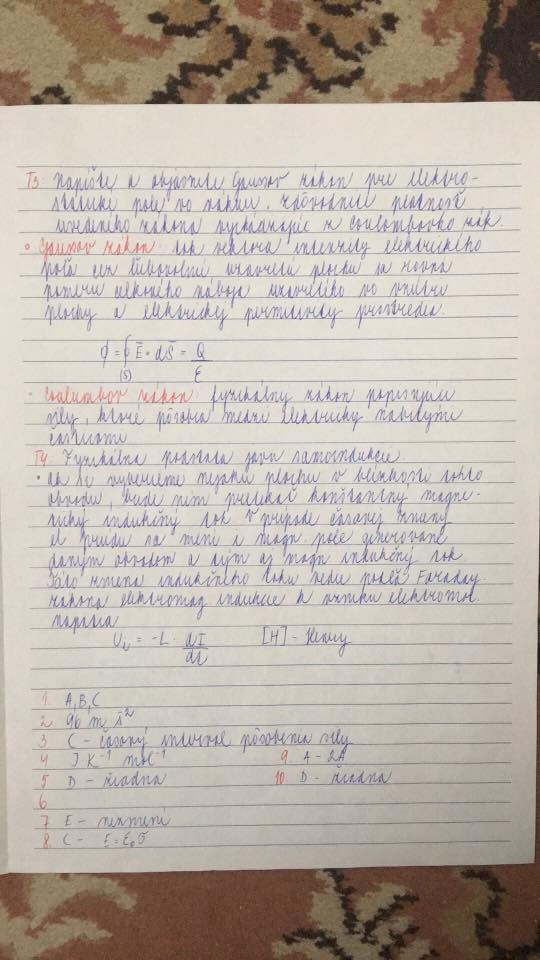 T3: Napíšte a objasnite Gausov zákon pre elektro-
statické pole vo vákuu. Zdôvodnite platnosť
uvedeného zákona vychádzajúc z Coulombovho zák.
• Gausov zákon: tok vektora intenzity elektrického
poľa cez ľubovoľnú uzavretú plochu sa rovná
pomeru celkového náboja uzavretého vo vnútri
plochy a elektrickej permitivity prostredia.
ϕ = ∮(S) E̅ • dS̅ = Q/ε
• Coulumbov zákon: fyzikálny zákon popisujúci
sily, ktoré pôsobia medzi elektricky nabitými
časticami
T4: Fyzikálna podstata javu samoindukcie.
• ak si vyberieme nejakú plochu v blízkosti tohto
obvodu, bude ním pretekať konštantný magne-
tický indukčný tok. V prípade časovej zmeny
el. prúdu sa mení i magn. pole generované
daným obvodom a tým aj magn indukčný tok
Táto zmena indukčného toku vedie podľa Faraday.
zákona elektromag indukcie k vzniku elektromot.
napätia
Ui = -L · dI/dt [H] - Henry
1 A, B, C
2 96 m s⁻²
3 C - časový interval pôsobenia sily
4 J K⁻¹ mol⁻¹ 9. A - 2A
5 D - žiadna 10. D - žiadna
6
7 E - nezmení
8 C -